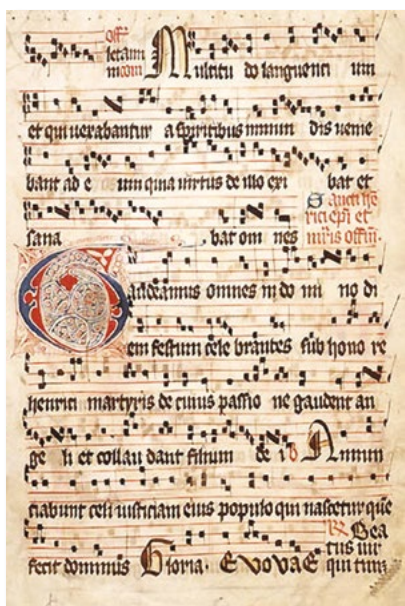 Off̄
letam̄ Multitu do languenti um
m̄ com̄
et qui uexabantur a spiritibus inmun dis uenie
bant ad e um quia uirtus de illo exi bat et
sana bat om nes
Sancti he
rici ep̄i et
m̄ris offm̄.
Gaudeamus omnes in do mi no di
em festum cele brantes sub hono re
henrici martyris de cuius passio ne gaudent an
ge li et collau dant filium de i Annun
ciabunt celi iusticiam eius populo qui nascetur quē
fecit dominus Gloria. EVOVAE
Bea
tus uir
qui tim